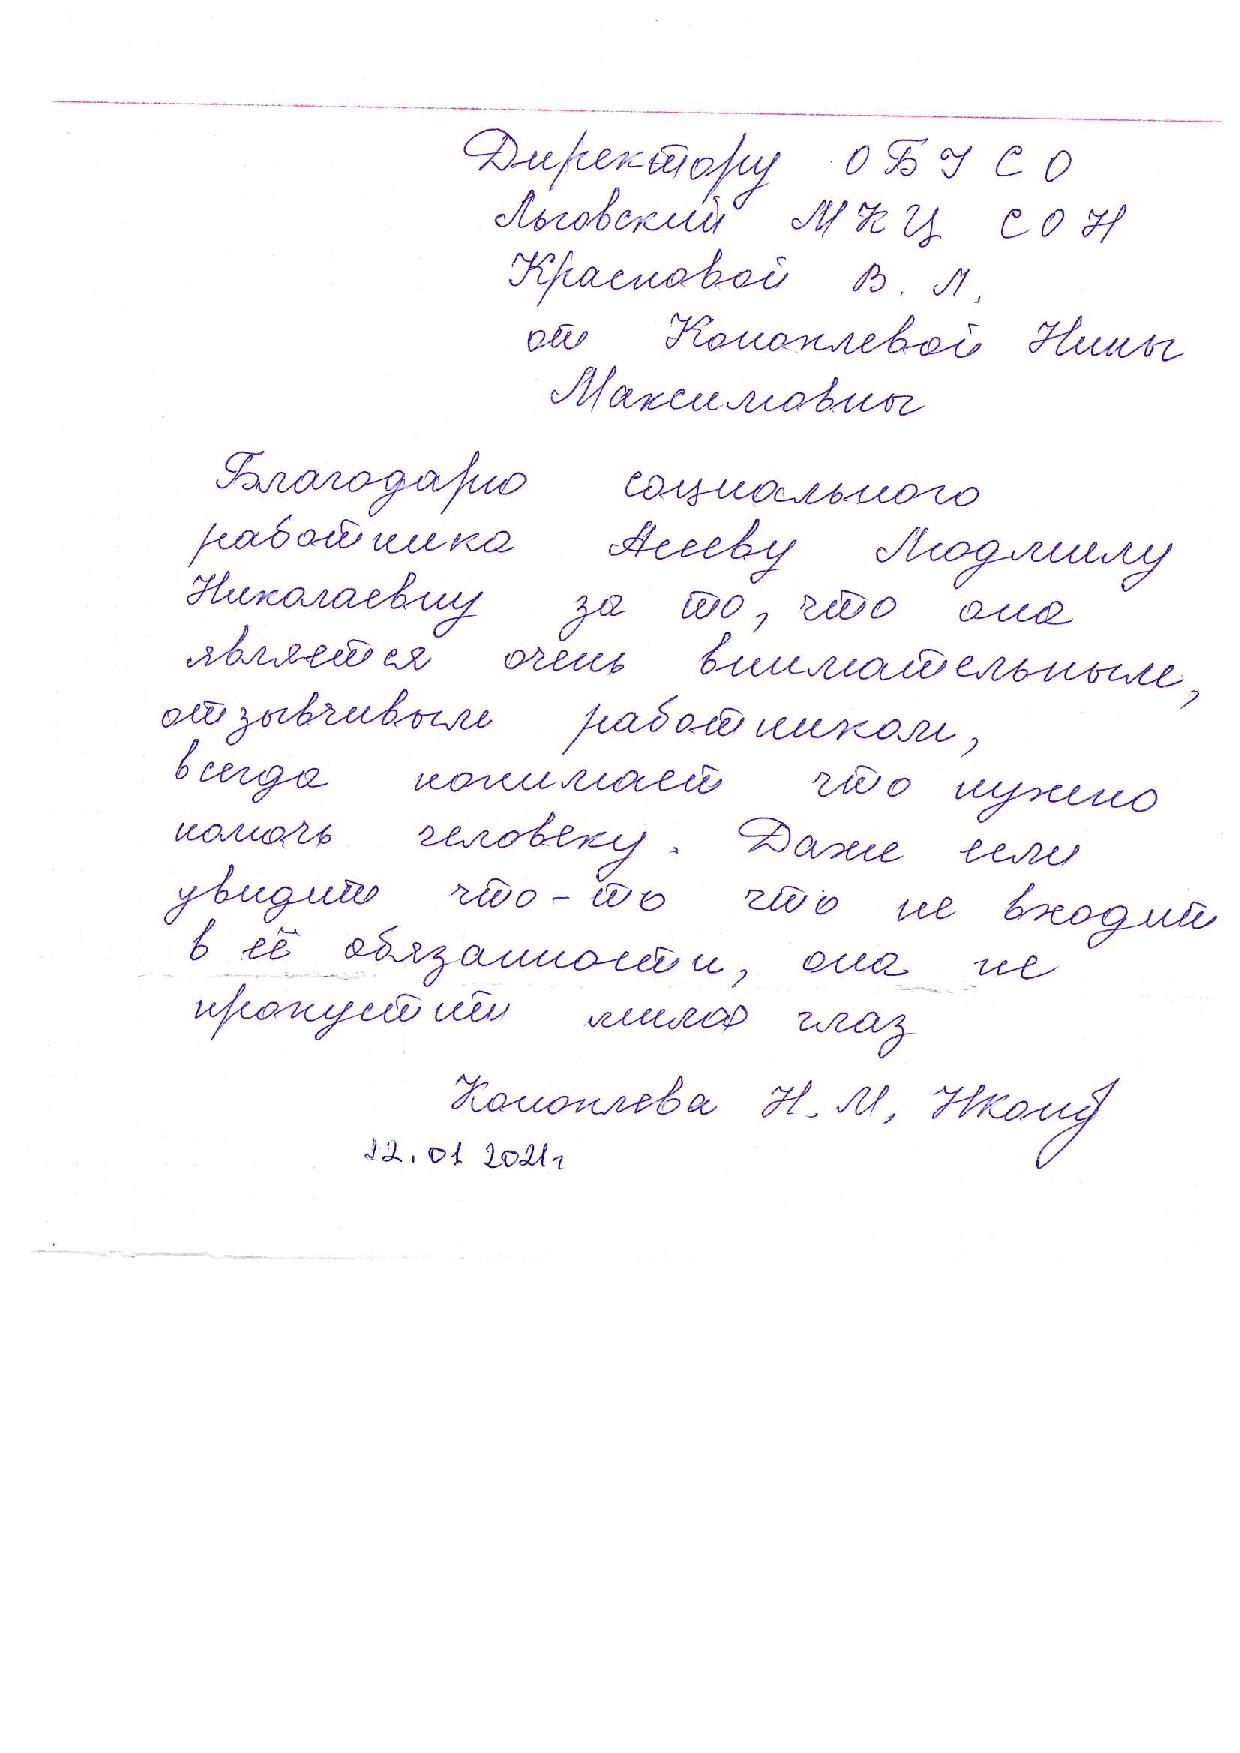 Директору ОБУСО
Льговский МКЦ СОН
Красновой В. Л.
от Коноплевой Нины
Максимовны
Благодарю социального
работника Асееву Людмилу
Николаевну за то, что она
является очень внимательным,
отзывчивым работником,
всегда понимает что нужно
помочь человеку. Даже если
увидит что-то что не входит
в её обязанности, она не
пропустит мимо глаз
Коноплева Н. М,
12.01 2021г